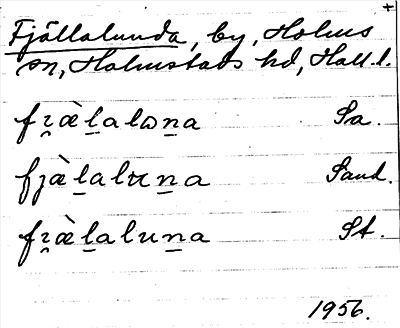 +
Fjällalunda, by, Holms
sn, Halmstads hd, Hall.l.
fi̯æ̀l̠alωn̠a Sa.
fjæ̀l̠alʊn̠a Sand.
fi̯æ̀l̠alun̠a St.
1956.